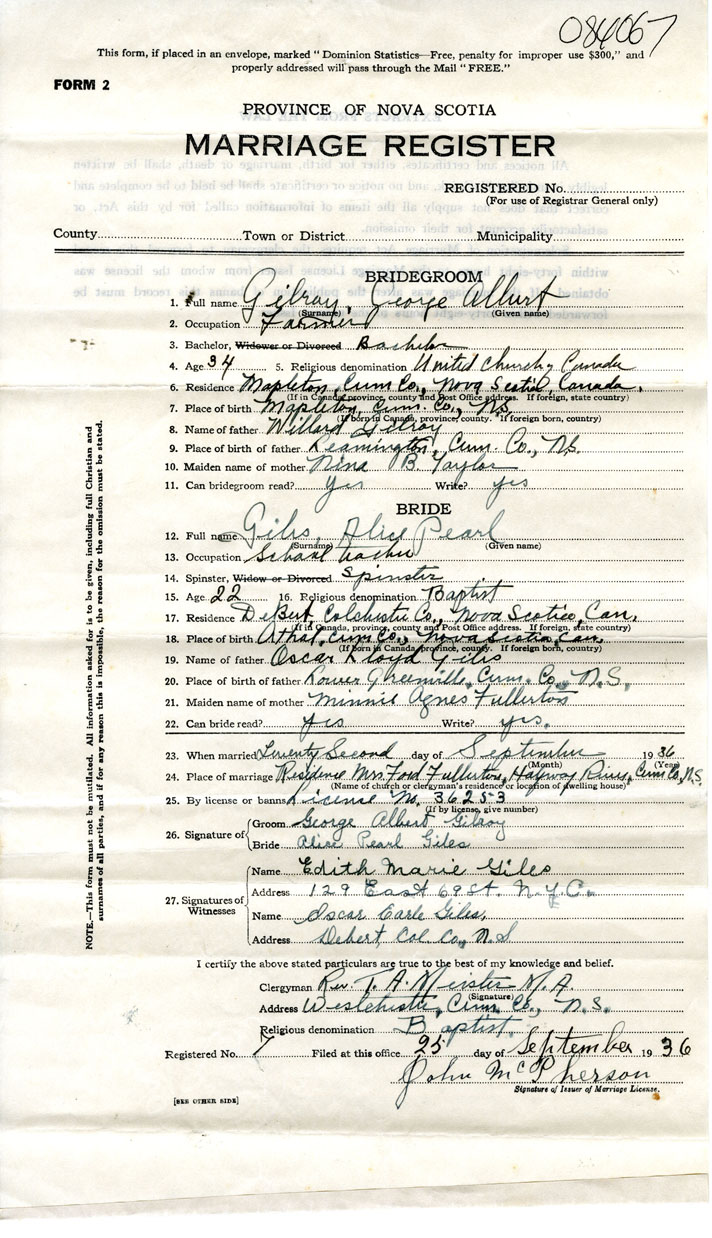 084067
This form, if placed in an envelope, marked "Dominion Statistics—Free, penalty for improper use $300," and
properly addressed will pass through the Mail "FREE."
FORM 2
PROVINCE OF NOVA SCOTIA
MARRIAGE REGISTER
REGISTERED No.
(For use of Registrar General only)
County Town or District Municipality
BRIDEGROOM
1. Full name Gilroy, George Albert
(Surname) (Given name)
2. Occupation Farmer
3. Bachelor, Widower or Divorced Bachelor
4. Age 34 5. Religious denomination United Church, Canada
6. Residence Mapleton, Cum. Co., Nova Scotia, Canada.
(If in Canada, province, county and Post Office address. If foreign, state country)
7. Place of birth Mapleton, Cum. Co., N.S.
(If born in Canada, province, county. If foreign born, country)
8. Name of father Willard Gilroy
9. Place of birth of father Leamington, Cum. Co., N.S.
10. Maiden name of mother Nina B. Taylor
11. Can bridegroom read? yes Write? yes
BRIDE
12. Full name Giles, Alice Pearl
(Surname) (Given name)
13. Occupation School teacher
14. Spinster, Widow or Divorced Spinster
15. Age 22 16. Religious denomination Baptist
17. Residence DeBert, Colchester Co., Nova Scotia, Can.
(If in Canada, province, county and Post Office address. If foreign, state country)
18. Place of birth Athol, Cum. Co., Nova Scotia, Can.
(If born in Canada, province, county. If foreign born, country)
19. Name of father Oscar Lloyd Giles
20. Place of birth of father Lower Greenville, Cum. Co., N.S.
21. Maiden name of mother Minnie Agnes Fullerton
22. Can bride read? yes Write? yes.
23. When married Twenty Second day of September 1936
(Month) (Year)
24. Place of marriage Residence Mrs. Ford Fullerton, Halfway River, Cum. Co., N.S.
(Name of church or clergyman's residence or location of dwelling house)
25. By license or banns License No. 36253
(If by license, give number)
26. Signature of Groom George Albert Gilroy
Bride Alice Pearl Giles
27. Signatures of Witnesses
Name Edith Marie Giles
Address 129 East 69 St. N.Y.C.
Name Oscar Earle Giles,
Address Debert, Col. Co., N.S
I certify the above stated particulars are true to the best of my knowledge and belief.
Clergyman Rev. T. A. M. A.
(Signature)
Address Westchester, Cum. Co., N.S.
Religious denomination Baptist.
Registered No. 7 Filed at this office 25 day of September 1936
John McPherson
Signature of Issuer of Marriage License.
[SEE OTHER SIDE]
NOTE.—This form must not be mutilated. All information asked for is to be given, including full Christian and
surnames of all parties, and if for any reason this is impossible, the reason for the omission must be stated.